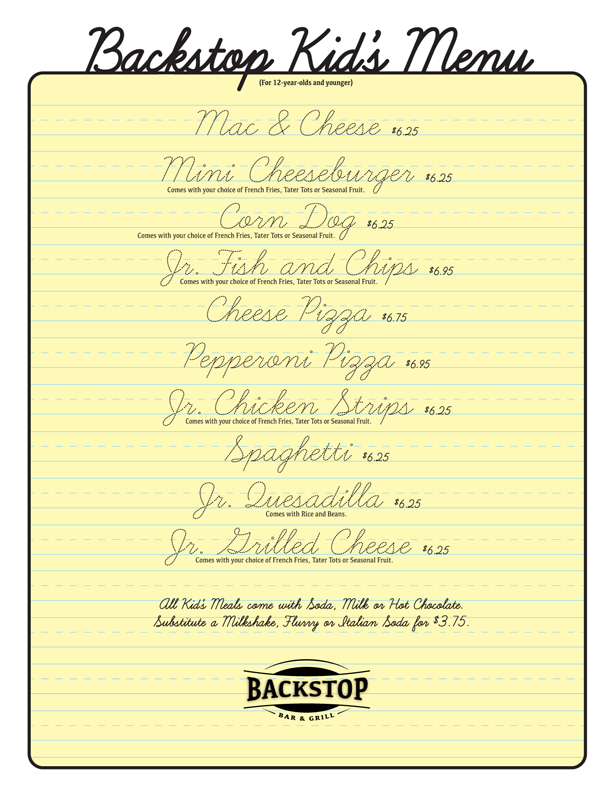 Backstop Kid's Menu
(For 12-year-olds and younger)
Mac & Cheese $6.25
Mini Cheeseburger $6.25
Comes with your choice of French Fries, Tater Tots or Seasonal Fruit.
Corn Dog $6.25
Comes with your choice of French Fries, Tater Tots or Seasonal Fruit.
Jr. Fish and Chips $6.95
Comes with your choice of French Fries, Tater Tots or Seasonal Fruit.
Cheese Pizza $6.75
Pepperoni Pizza $6.95
Jr. Chicken Strips $6.25
Comes with your choice of French Fries, Tater Tots or Seasonal Fruit.
Spaghetti $6.25
Jr. Quesadilla $6.25
Comes with Rice and Beans.
Jr. Grilled Cheese $6.25
Comes with your choice of French Fries, Tater Tots or Seasonal Fruit.
All Kid's Meals come with Soda, Milk or Hot Chocolate.
Substitute a Milkshake, Flurry or Italian Soda for $3.75.
BACKSTOP
BAR & GRILL